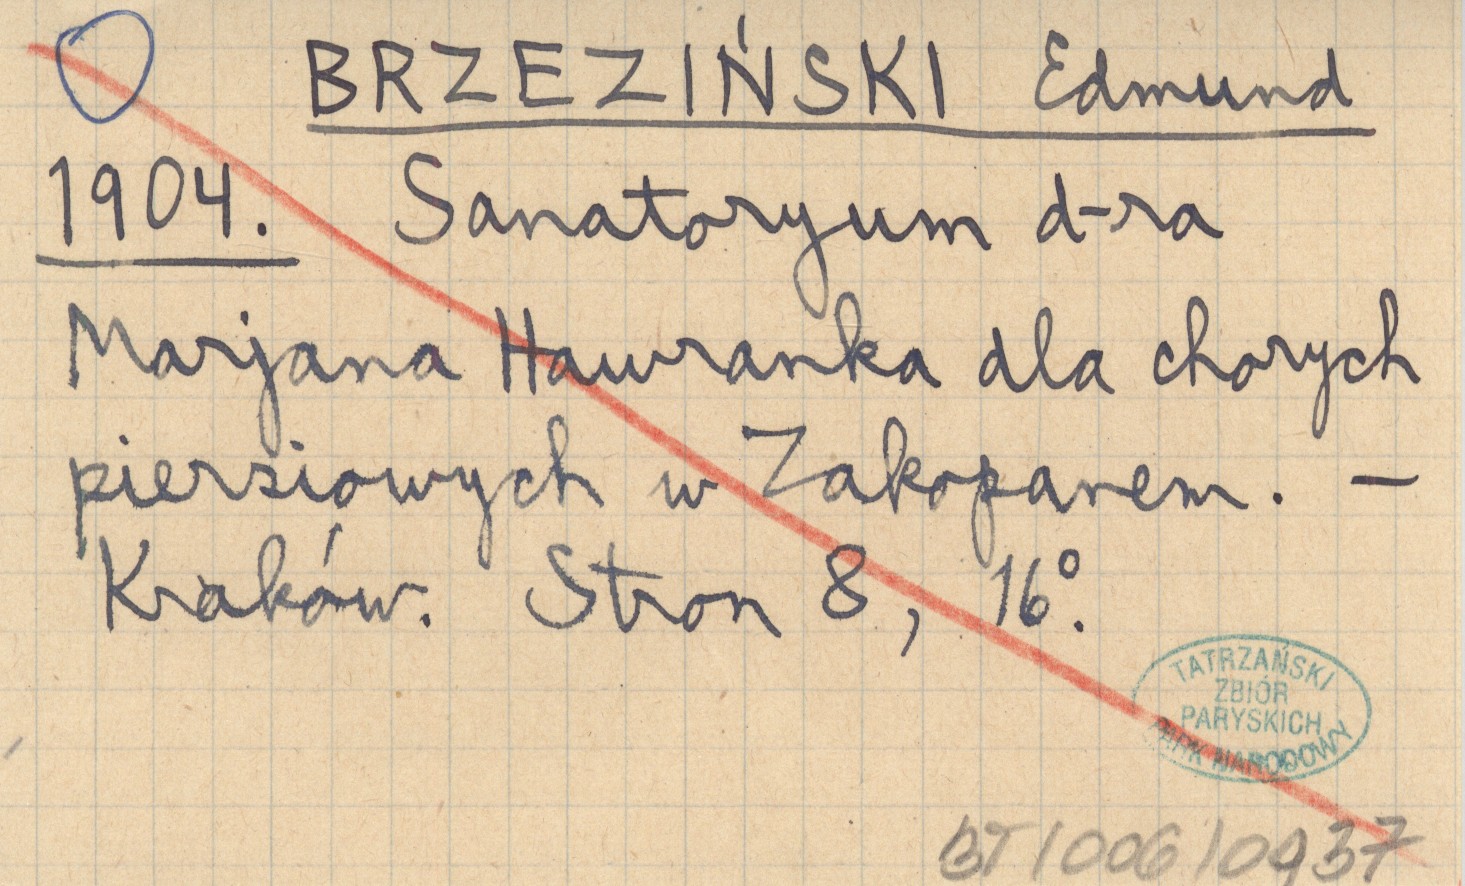 BRZEZIŃSKI Edmund
1904. Sanatoryum d-ra
Marjana Hawranka dla chorych
piersiowych w Zakopanem. —
Kraków. Stron 8, 16°.
TATRZAŃSKI
ZBIÓR
PARYSKICH
PARK NARODOWY
BT/006/0937